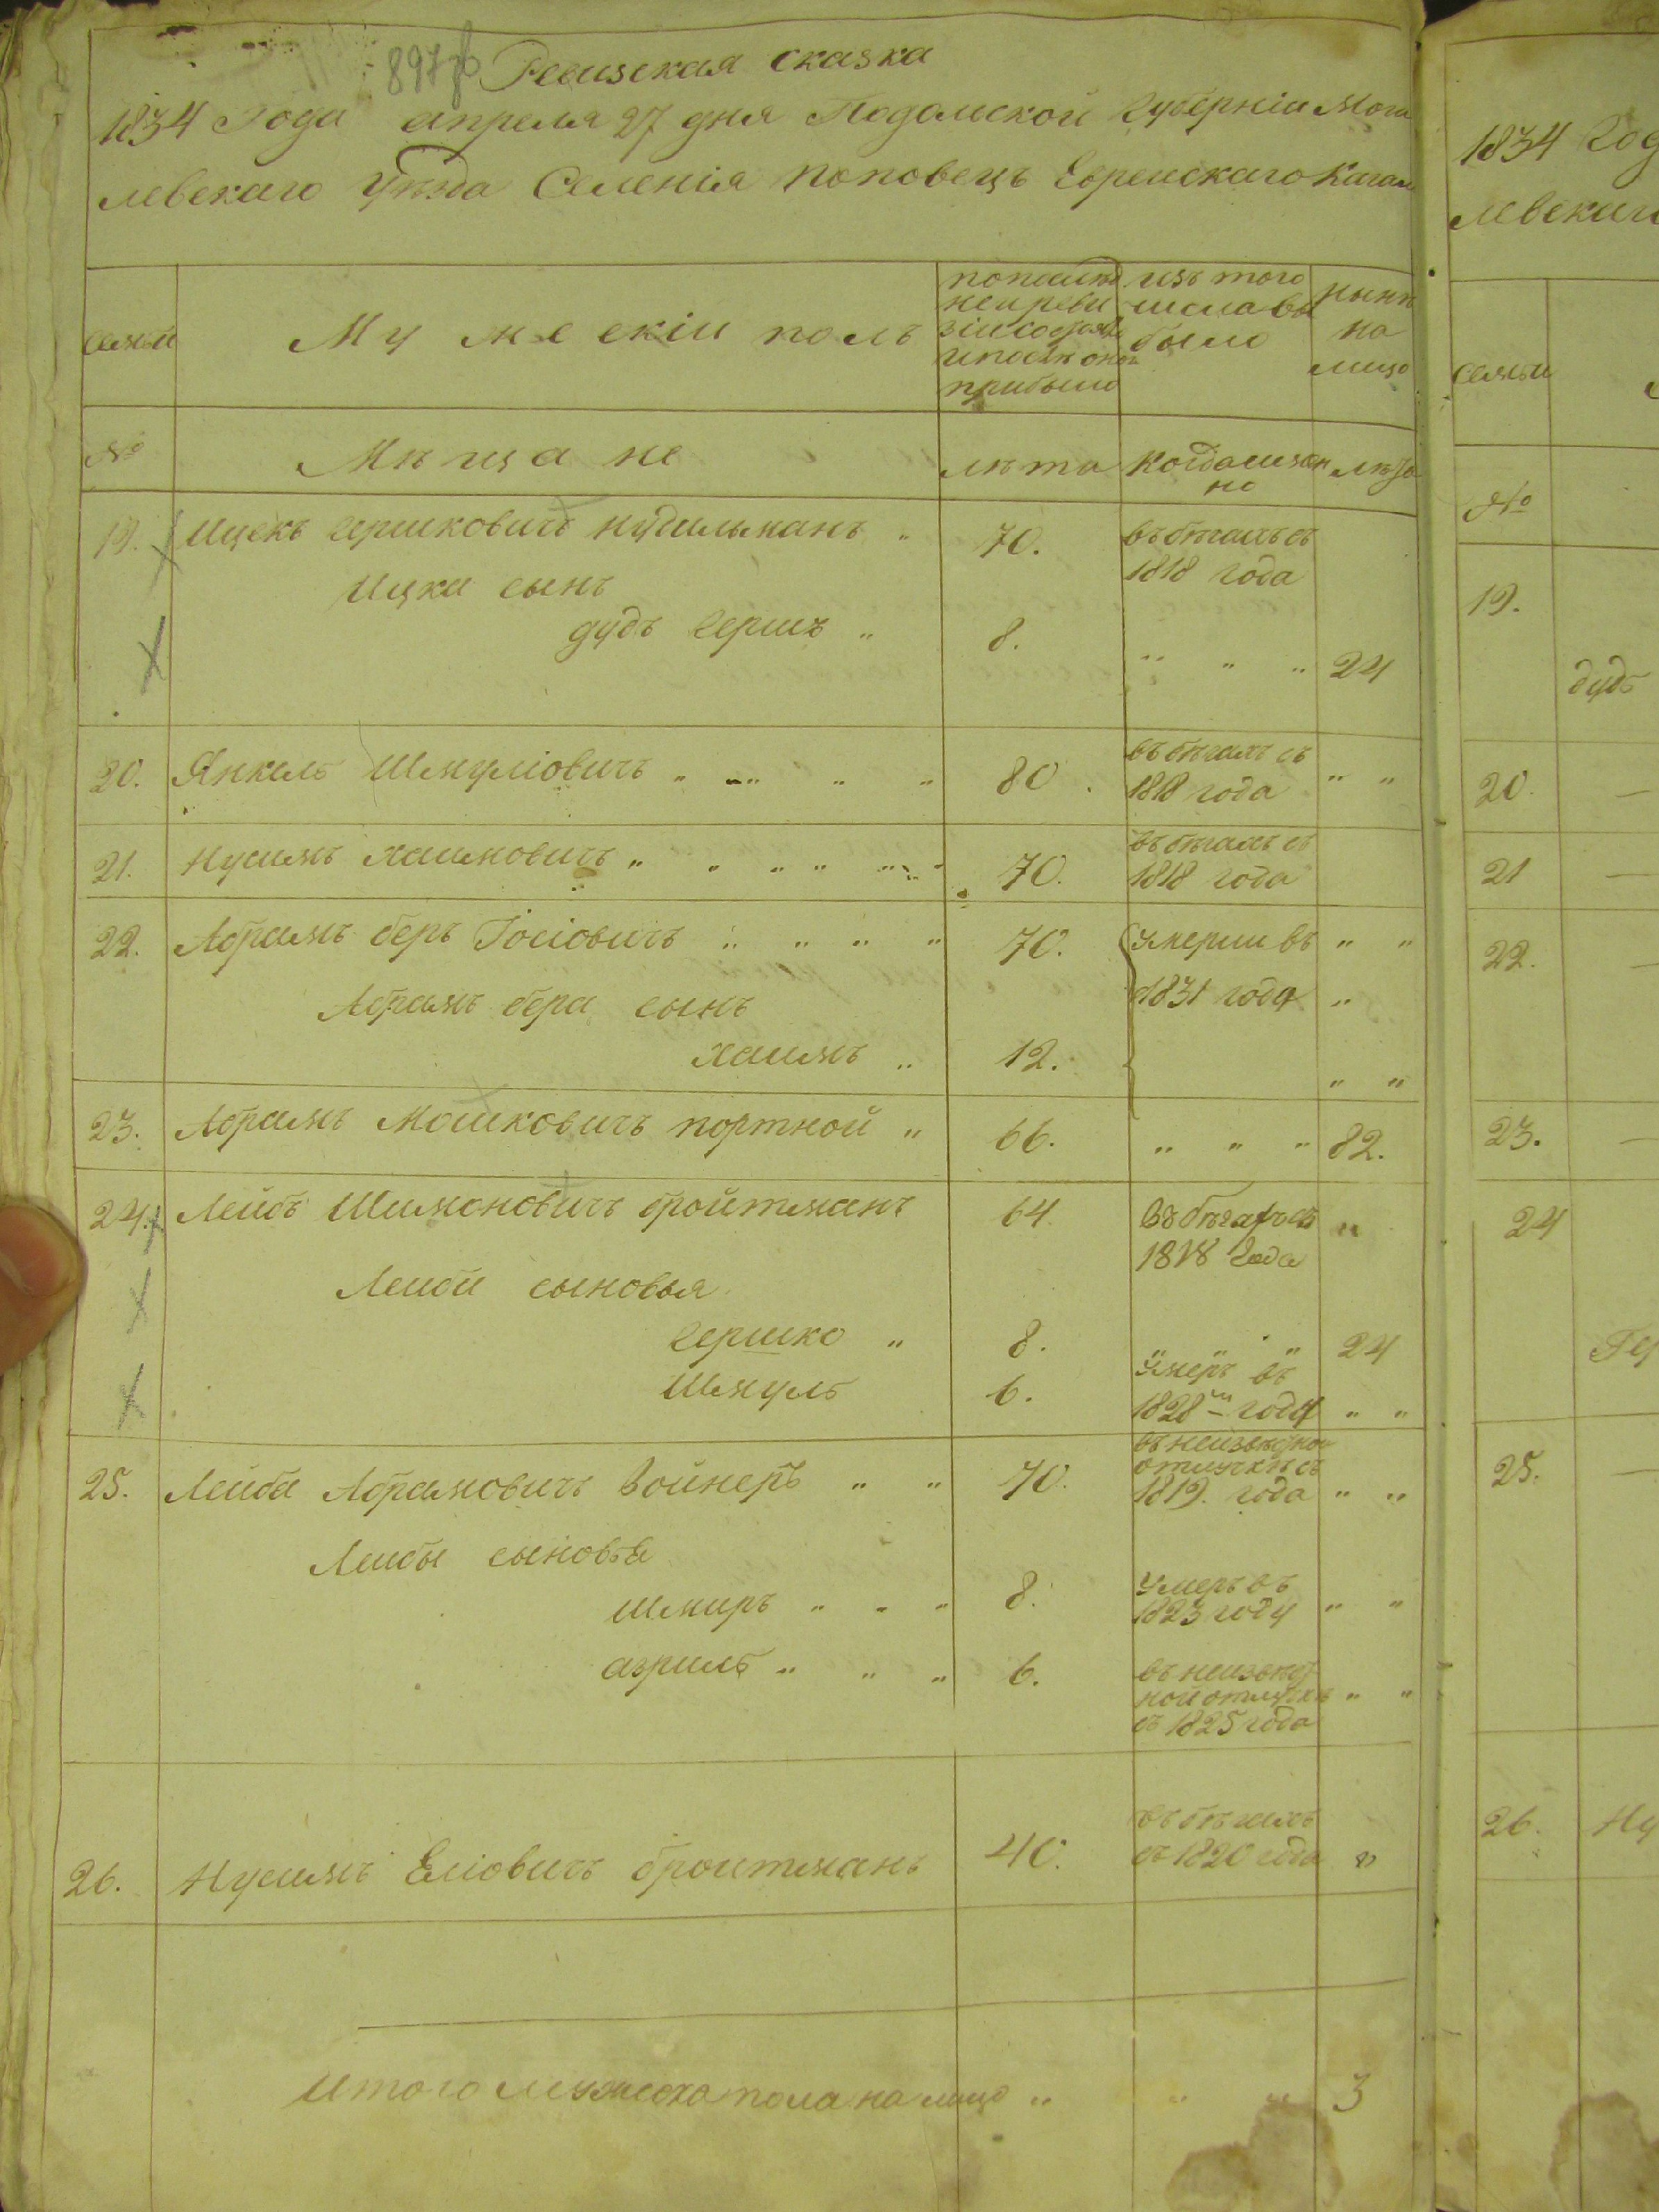 897
Ревизская сказка
1834 Года апреля 27 дня Подольской Губерніи Моги
левскаго Уѣзда Селенія Поповецъ Еврейскаго Кагала
семьи
Мужескій полъ
по послѣд
ней реви
зіи состояло
и послѣ оной
прибыло
изъ того
числа вы
было
нынѣ
на
лицо
№
Мѣщане
лѣта
когда имян
но
лѣта
19. Ицекъ Гершковичъ Нудильманъ „ 70. въ бѣгахъ съ
1818 года
Ицки сынъ
дудъ Гершъ „ 8. „ „ „ 24
20. Янкель Шмуліовичъ „ „ „ „ 80. въ бѣгахъ съ
1818 года „ „
21. Нусимъ Хаимовичъ „ „ „ „ „ „ 70. въ бѣгахъ съ
1818 года
22. Абрамъ беръ Іосіовичъ „ „ „ „ 70. умерли въ „ „
Абрамъ бера сынъ 1831 году „
хаимъ „ 12. „ „
23. Абрамъ Мошковичъ портной „ 66. „ „ „ 82.
24. Лейбъ Шимоновичъ бройтманъ 64. въ бѣгахъ съ „
1818 года
Лейби сыновья
Гершко „ 8. „ „ 24
Шмуль 6. умеръ въ
1828м году „ „
25. Лейба Абрамовичъ Войнеръ „ „ 70. въ неизвѣстной
отлучкѣ съ
1819. года „ „
Лейбы сыновья
Шмиръ „ „ „ 8. умеръ въ
1823 году „ „
азриль „ „ „ 6. въ неизвѣст
ной отлучкѣ „ „
съ 1825 года
26. Нусимъ Еліовичъ бройтманъ 40. въ бѣгахъ
съ 1820 года „
Итого мужеска пола на лицо „ „ „ 3
1834 Год
левскаго
семьи
№
19.
дудъ
20.
21
22.
23.
24
Гер
25.
26. Ну